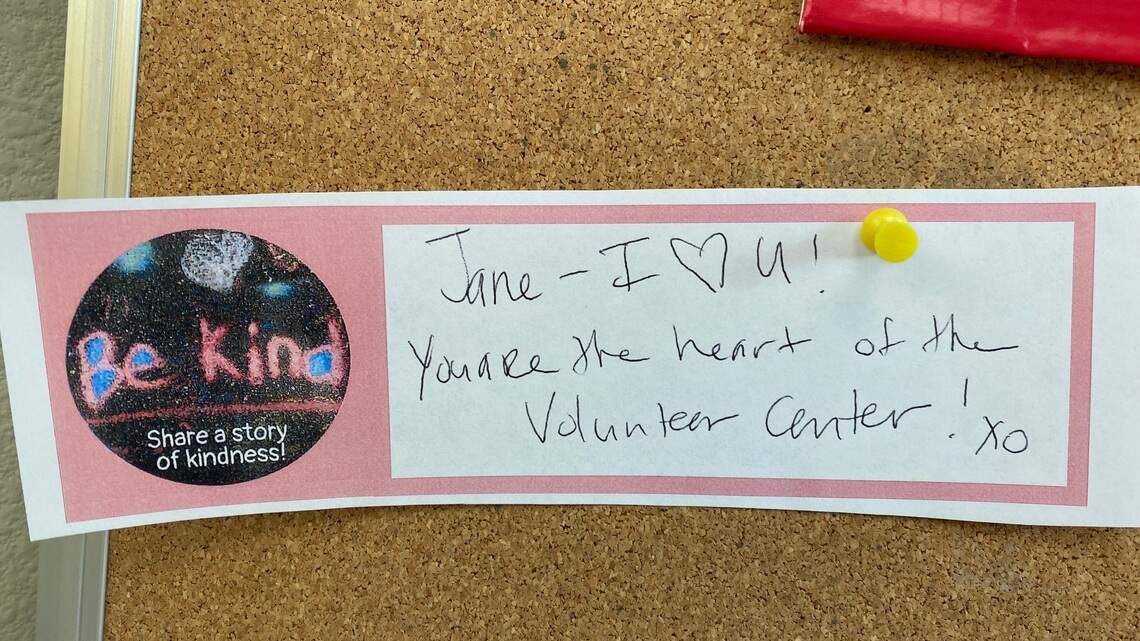 Be Kind
Share a story
of kindness!
Jane - I ♡ U!
You are the heart of the
Volunteer Center! xo